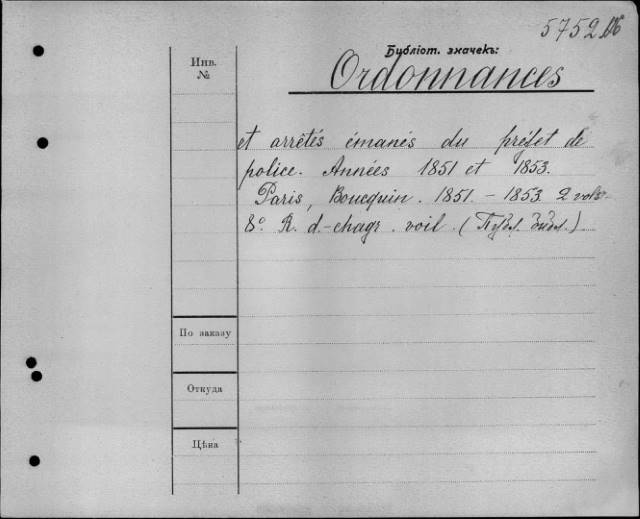 5752
Библіот. значекъ:
Инв.
№
Ordonnances
et arrêtés émanés du préfet de
police. Années 1851 et 1853.
Paris, Boucquin. 1851.-1853. 2 vols.
8º R. d.-chagr. voil. (Публ. Библ.)
По заказу
Откуда
Цѣна